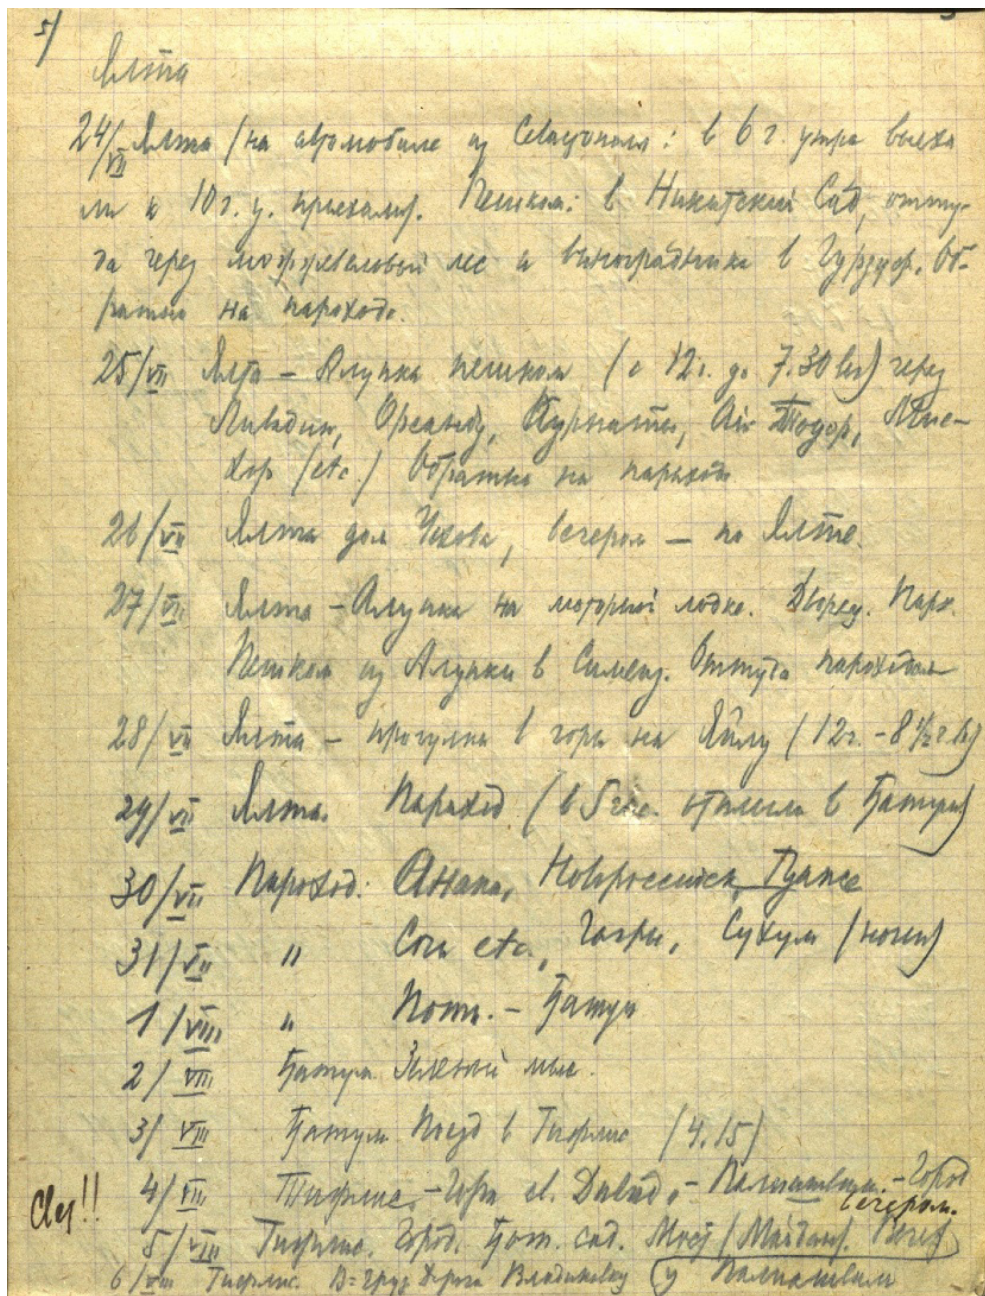 5/
Ялта
24/VII Ялта (на автомобиле из Севастополя: в 6 г. утра выеха
ли в 10 г. у. приехали). Пешком: в Никитский Сад, отту-
да через можжевеловый лес и виноградники в Гурзуф. Об-
ратно на пароходе.
25/VII Ялта – Алупка пешком (с 12 г. до 7.30 ве) через
Ливадию, Ореанду, Курпаты, Ай Тодор, Мис-
хор (etc.) Обратно на пароходе
26/VII Ялта дом Чехова, вечером – по Ялте.
27/VII Ялта – Алупка на моторной лодке. Дворец. Парк.
Пешком из Алупки в Симеиз. Оттуда пароходом
28/VII Ялта – прогулка в горы на Яйлу (12 г. – 8 1/2 г ве)
29/VII Ялта. Пароход (в 5 час. отплыли в Батум)
30/VII Пароход: Анапа, Новороссийск, Туапсе
31/VII " Сочи etc., Гагры, Сухум (ночью)
1/VIII " Поти. – Батум
2/VIII Батум Зеленый мыс.
3/VIII Батум Поезд в Тифлис (4.15)
4/VII Тифлис. – Гора св. Давид. – – Город
вечером.
5/VIII Тифлис. Город. Бот. сад. Мост (Майдан). Вечер
6/VIII Тифлис. В=Груз Дорога Владикавказ (у